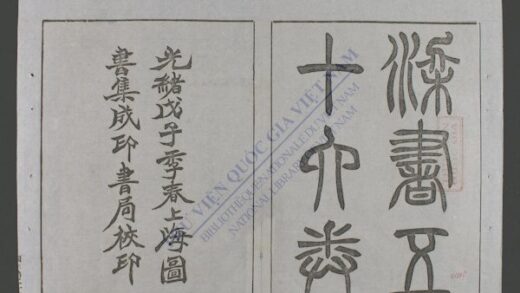 梁書五
十六卷
光緒戊子季春上海圖
書集成印書局校印
THƯ VIỆN QUỐC GIA VIỆT NAM
BIBLIOTHÈQUE NATIONALE DU VIET NAM
NATIONAL LIBRARY OF VIET NAM